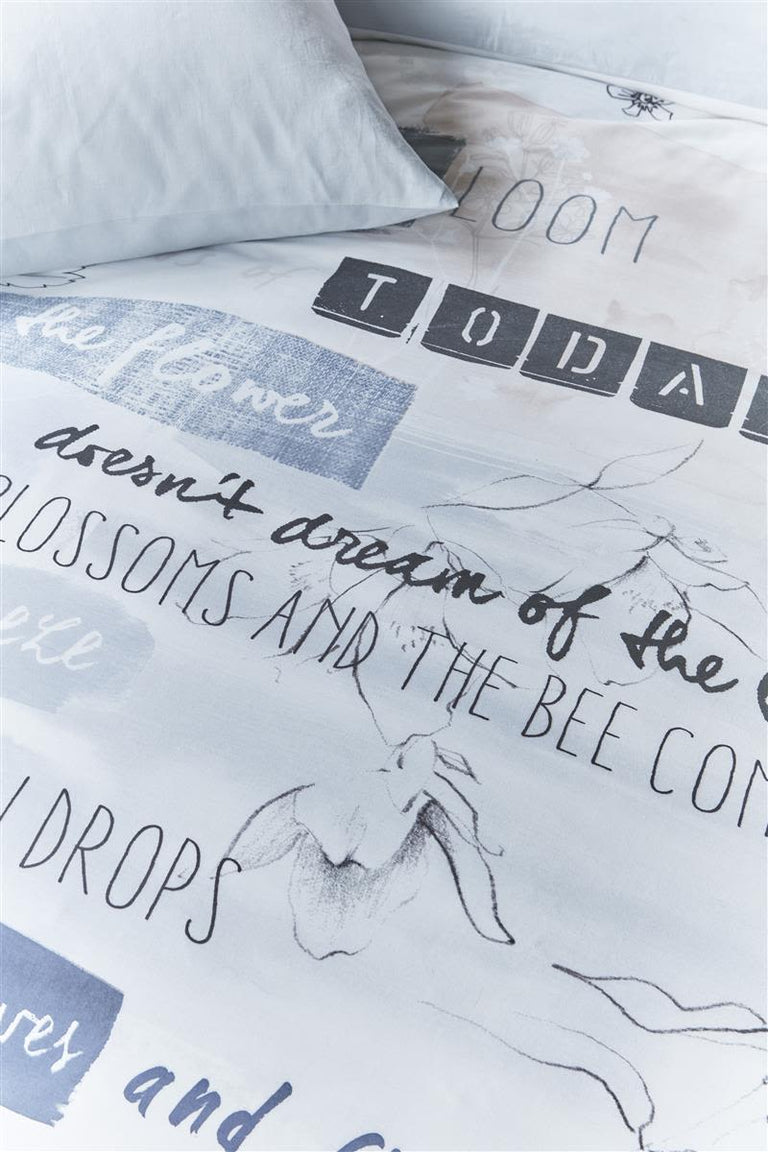 LOOM
TODA
the flower
doesn't dream of the
BLOSSOMS AND THE BEE COM
DROPS
and